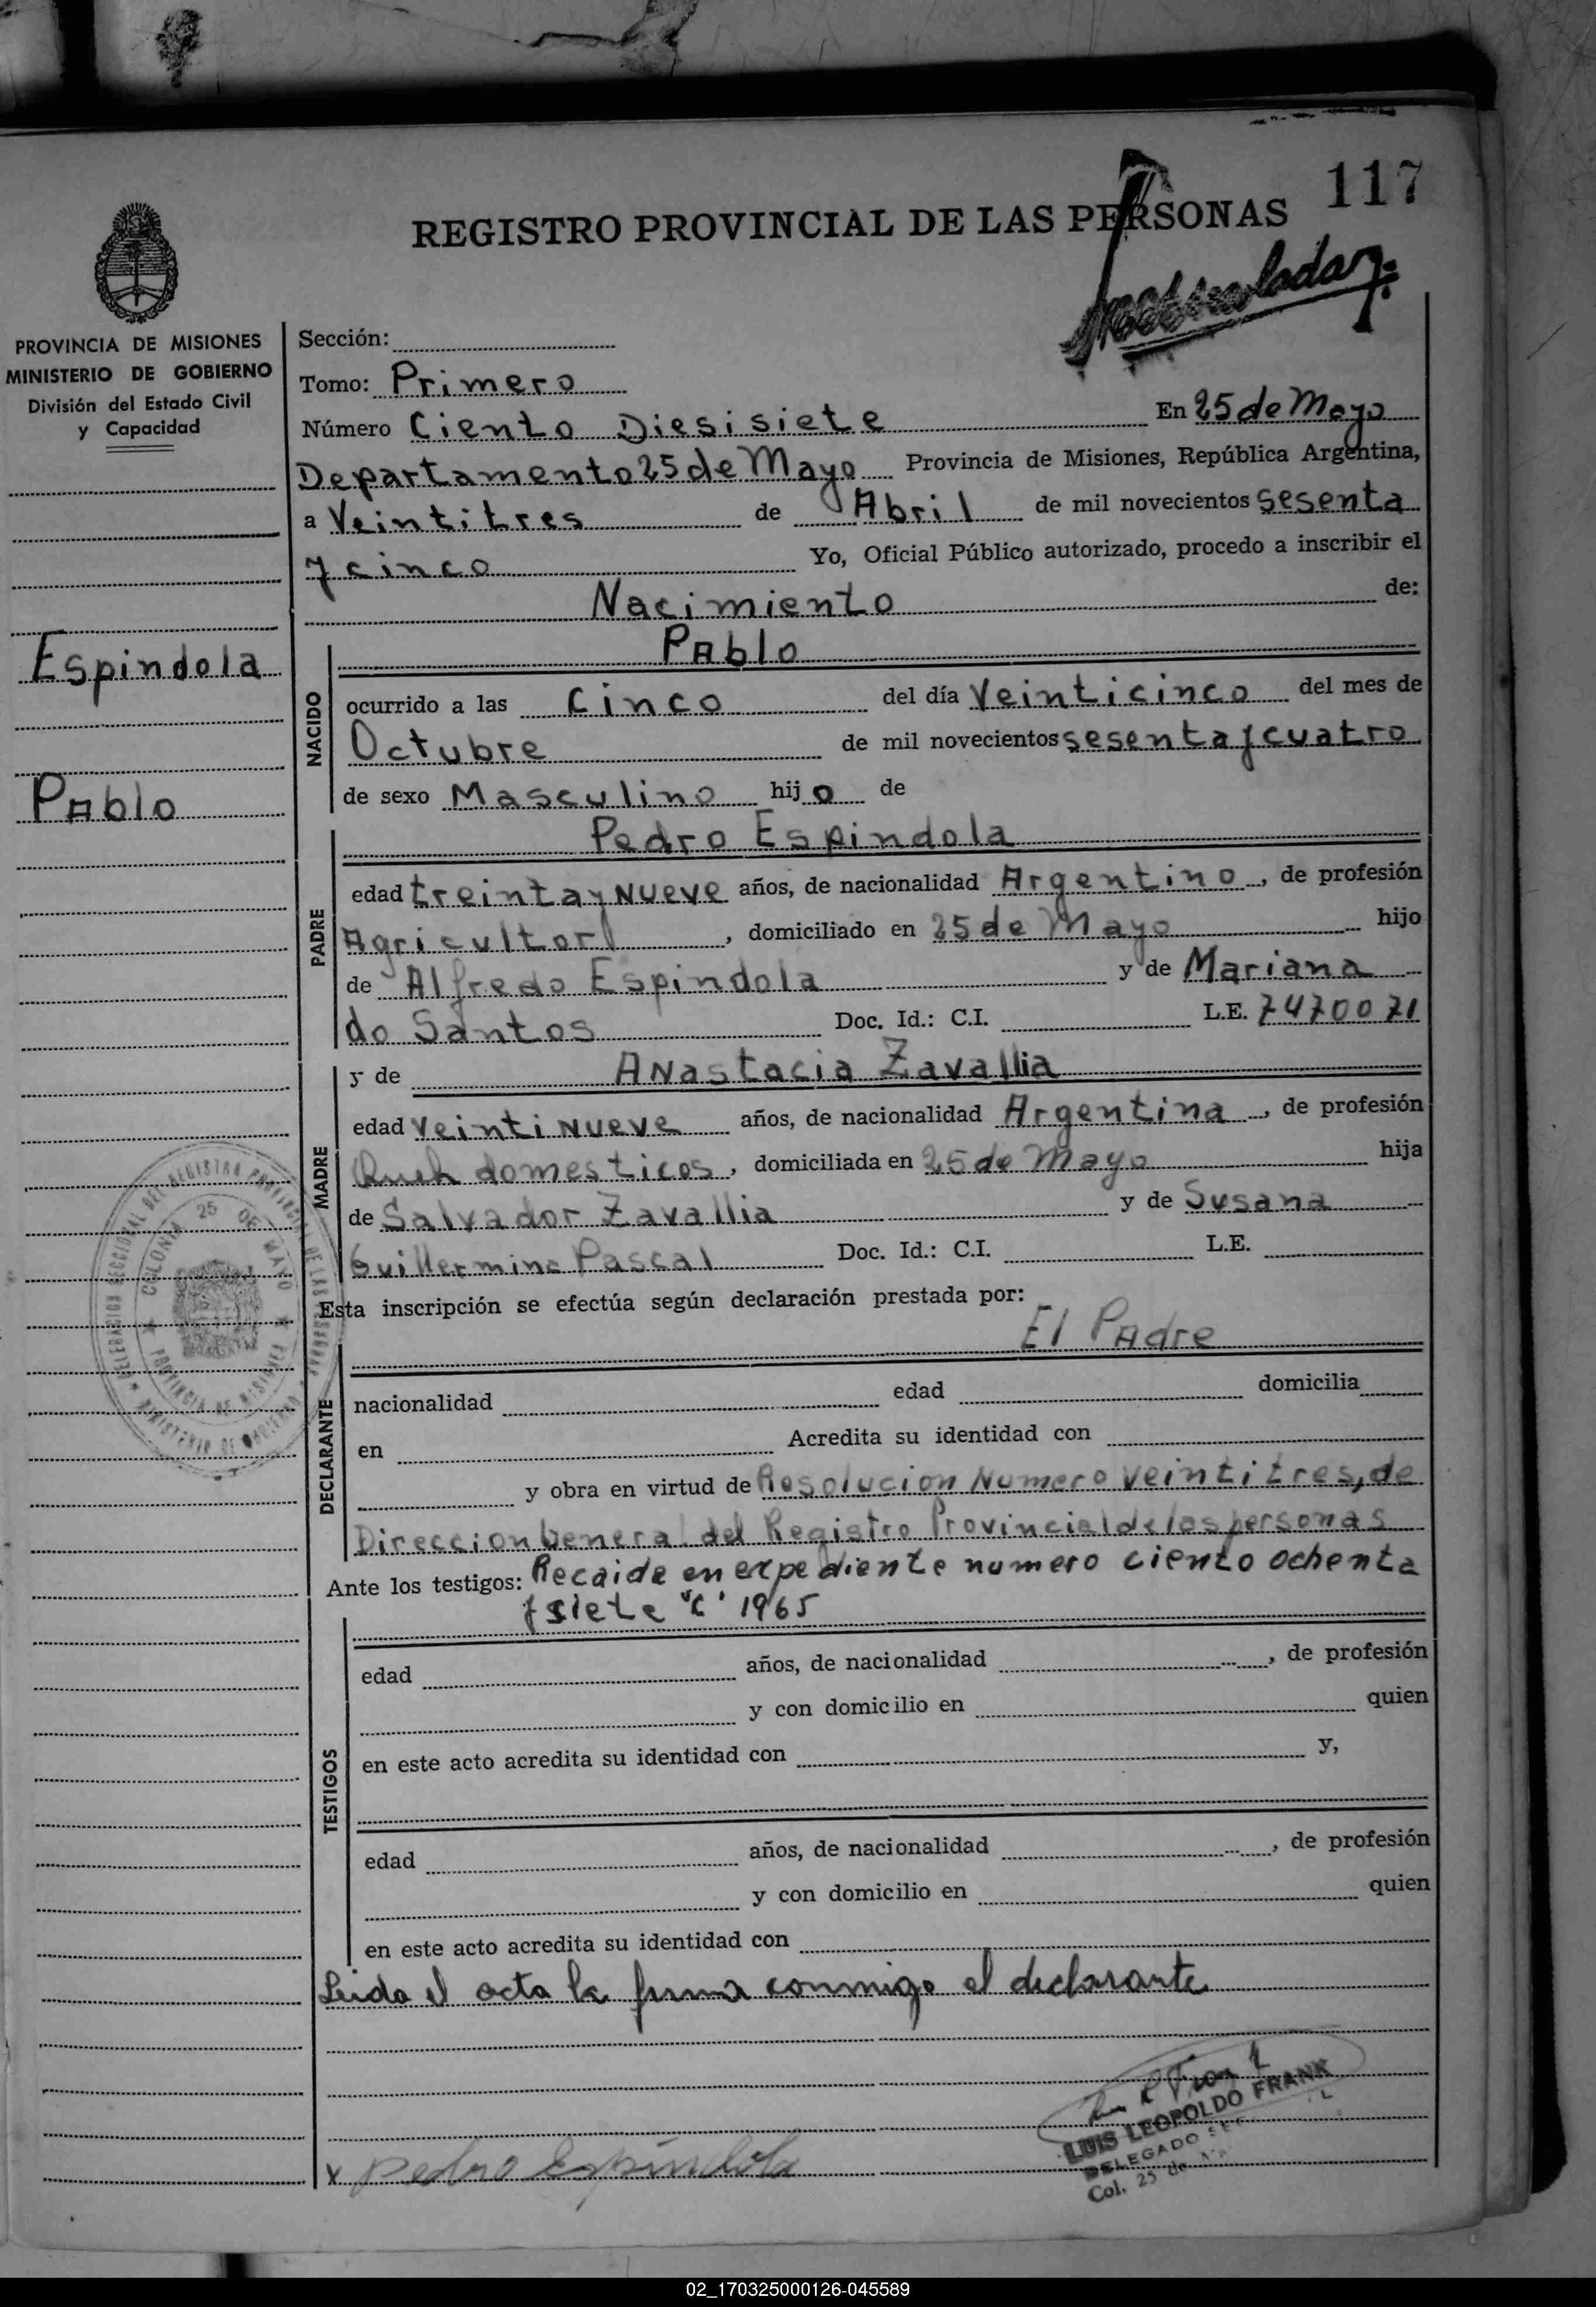 117
REGISTRO PROVINCIAL DE LAS PERSONAS
PROVINCIA DE MISIONES
MINISTERIO DE GOBIERNO
División del Estado Civil
y Capacidad
Espindola
Pablo
Sección:
Tomo: Primero
Número Ciento Diesisiete En 25 de Mayo
Departamento 25 de Mayo Provincia de Misiones, República Argentina,
a Veintitres de Abril de mil novecientos sesenta
y cinco Yo, Oficial Público autorizado, procedo a inscribir el
Nacimiento de:
NACIDO
Pablo
ocurrido a las Cinco del día Veinticinco del mes de
Octubre de mil novecientos sesenta y cuatro
de sexo Masculino hijo de
PADRE
Pedro Espindola
edad treinta y nueve años, de nacionalidad Argentino, de profesión
Agricultor, domiciliado en 25 de Mayo hijo
de Alfredo Espindola y de Mariana
do Santos Doc. Id.: C.I. L.E. 7470071
MADRE
y de Anastacia Zavallia
edad Veintinueve años, de nacionalidad Argentina, de profesión
domesticos, domiciliada en 25 de Mayo hija
de Salvador Zavallia y de Susana
Guillermina Pascal Doc. Id.: C.I. L.E.
Esta inscripción se efectúa según declaración prestada por:
El Padre
DECLARANTE
nacionalidad edad domicilia
en Acredita su identidad con
y obra en virtud de Resolucion Numero veintitres, de
Direccion General del Registro Provincial de las personas
Ante los testigos: Recaida en expediente numero ciento ochenta
y siete "C" 1965
TESTIGOS
edad años, de nacionalidad , de profesión
y con domicilio en quien
en este acto acredita su identidad con y,
edad años, de nacionalidad , de profesión
y con domicilio en quien
en este acto acredita su identidad con
Leida el acta la firma conmigo el declarante
LUIS LEOPOLDO FRANK
DELEGADO
Col. 25 de
x Pedro Espindola
DELEGACION SECCIONAL DEL REGISTRO PROVINCIAL DE LAS PERSONAS
MINISTERIO DE GOBIERNO
COLONIA 25 DE MAYO
PROVINCIA DE MISIONES
02_170325000126-045589